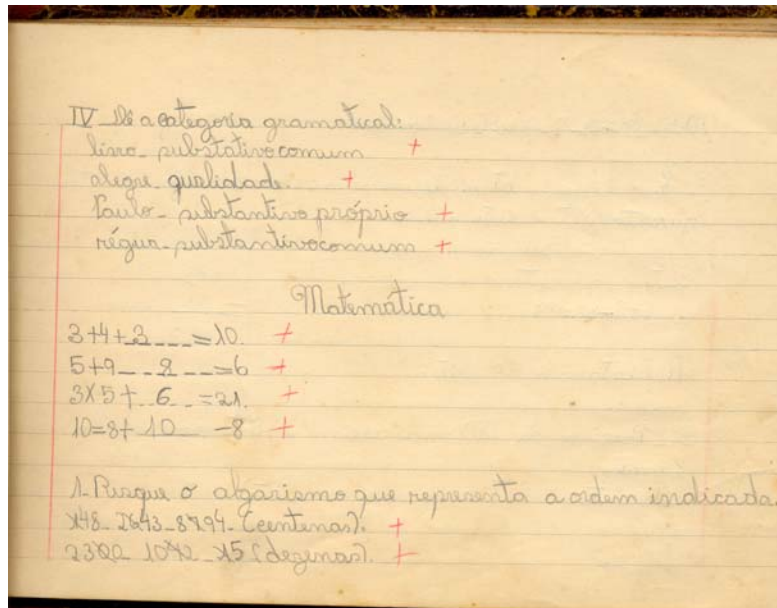 IV - Dê a categoria gramatical:
livro - substativo comum +
alegre - qualidade. +
Paulo - substantivo próprio +
régua - substantivo comum +
Matemática
3+4+ 3 ---=10. +
5+9 -- 8 --=6 +
3X5+ 6 --=21. +
10=8+ 10 -8 +
1- Risque o algarismo que representa a ordem indicada
(centenas). +
(dezenas). +